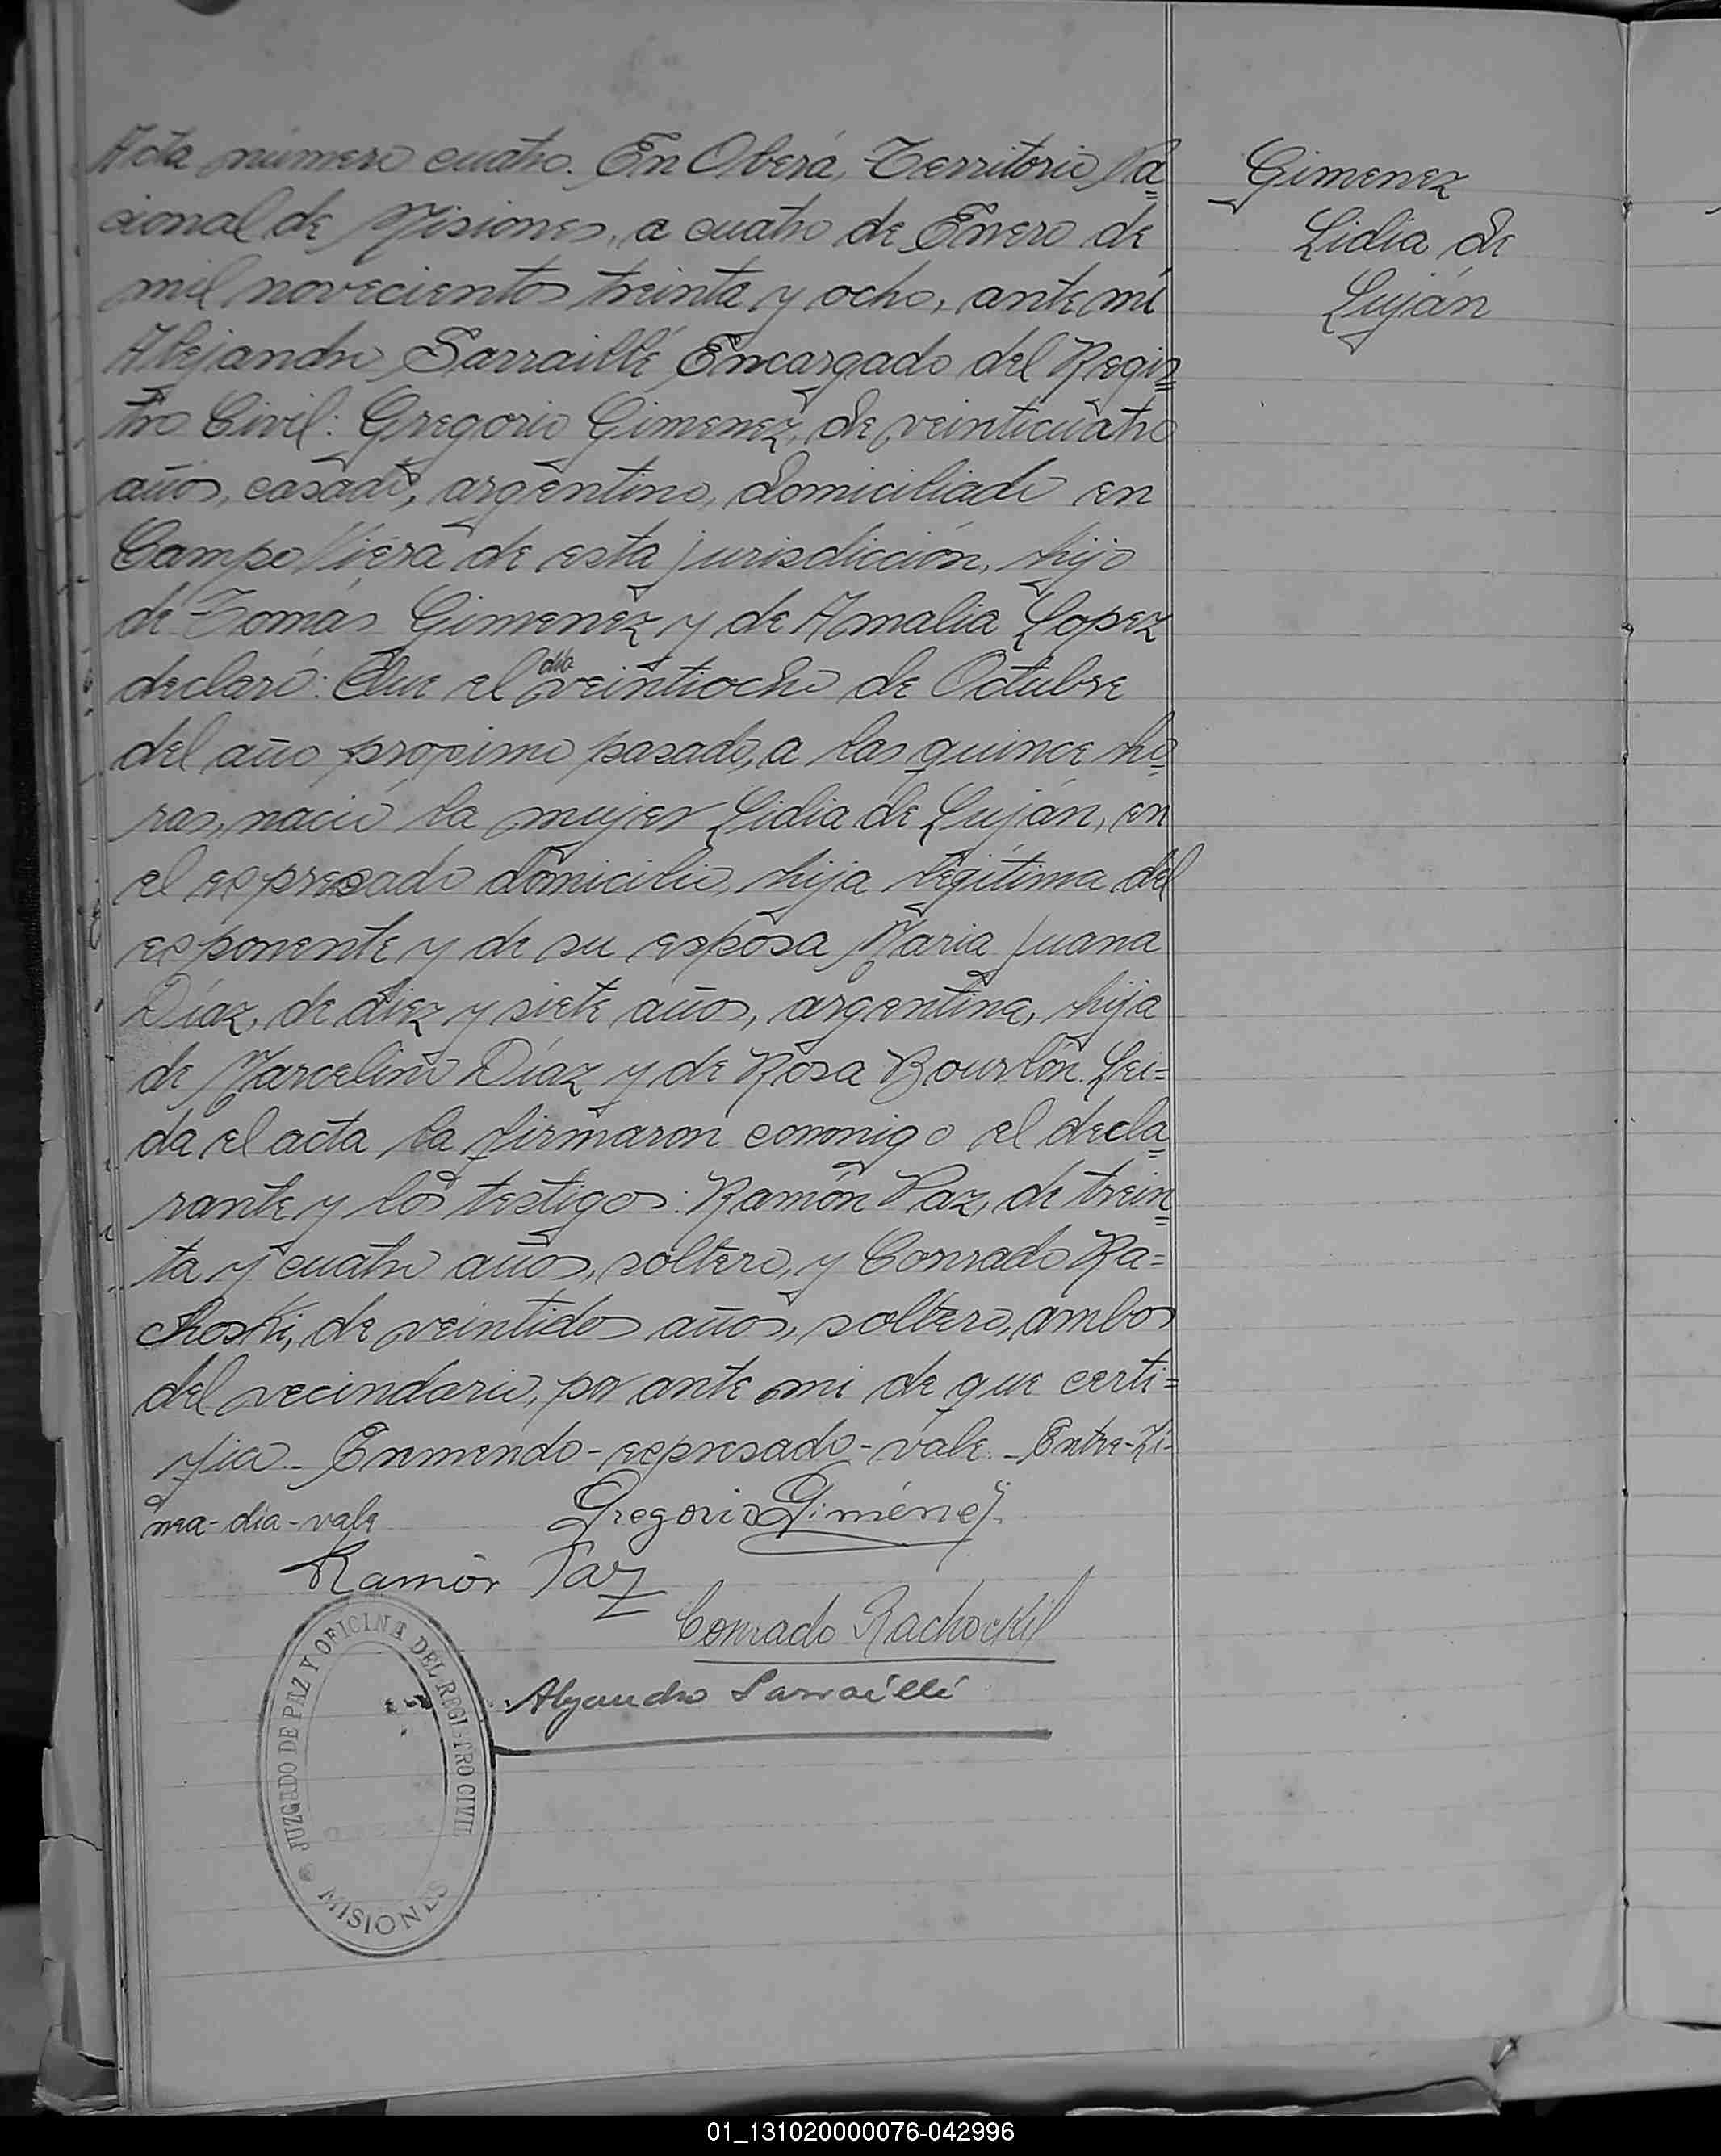 Acta número cuatro. En Oberá, Territorio Na=
cional de Misiones, a cuatro de Enero de
mil novecientos treinta y ocho, ante mí
Alejandro Sarraillé Encargado del Regis=
tro Civil: Gregorio Gimenez, de veinticuatro
años, casado, argentino, domiciliado en
Campo Viera de esta jurisdicción, hijo
de Tomás Gimenez y de Amalia Lopez
declaró: Que el día veintiocho de Octubre
del año propimo pasado, a las quince ho=
ras, nació la mujer Lidia de Luján, en
el espresado domicilio, hija legítima del
esponente y de su esposa Maria Juana
Díaz, de diez y siete años, argentina, hija
de Marcelino Díaz y de Rosa Bourlón. Lei=
da el acta la firmaron conmigo el decla=
rante y los testigos: Ramón Paz, de trein=
ta y cuatro años, soltero, y Conrado Ra=
choski, de veintidos años, soltero, ambos
del vecindario, por ante mi de que certi=
fico. Enmendo-espresado-vale.- Entre-Li-
nea-día-vale
Gregorio Giménez
Ramón Paz
Conrado Rachockif
Alejandro Sarraillé
JUZGADO DE PAZ Y OFICINA DEL REGISTRO CIVIL
MISIONES
Gimenez
Lidia de
Luján
01_131020000076-042996